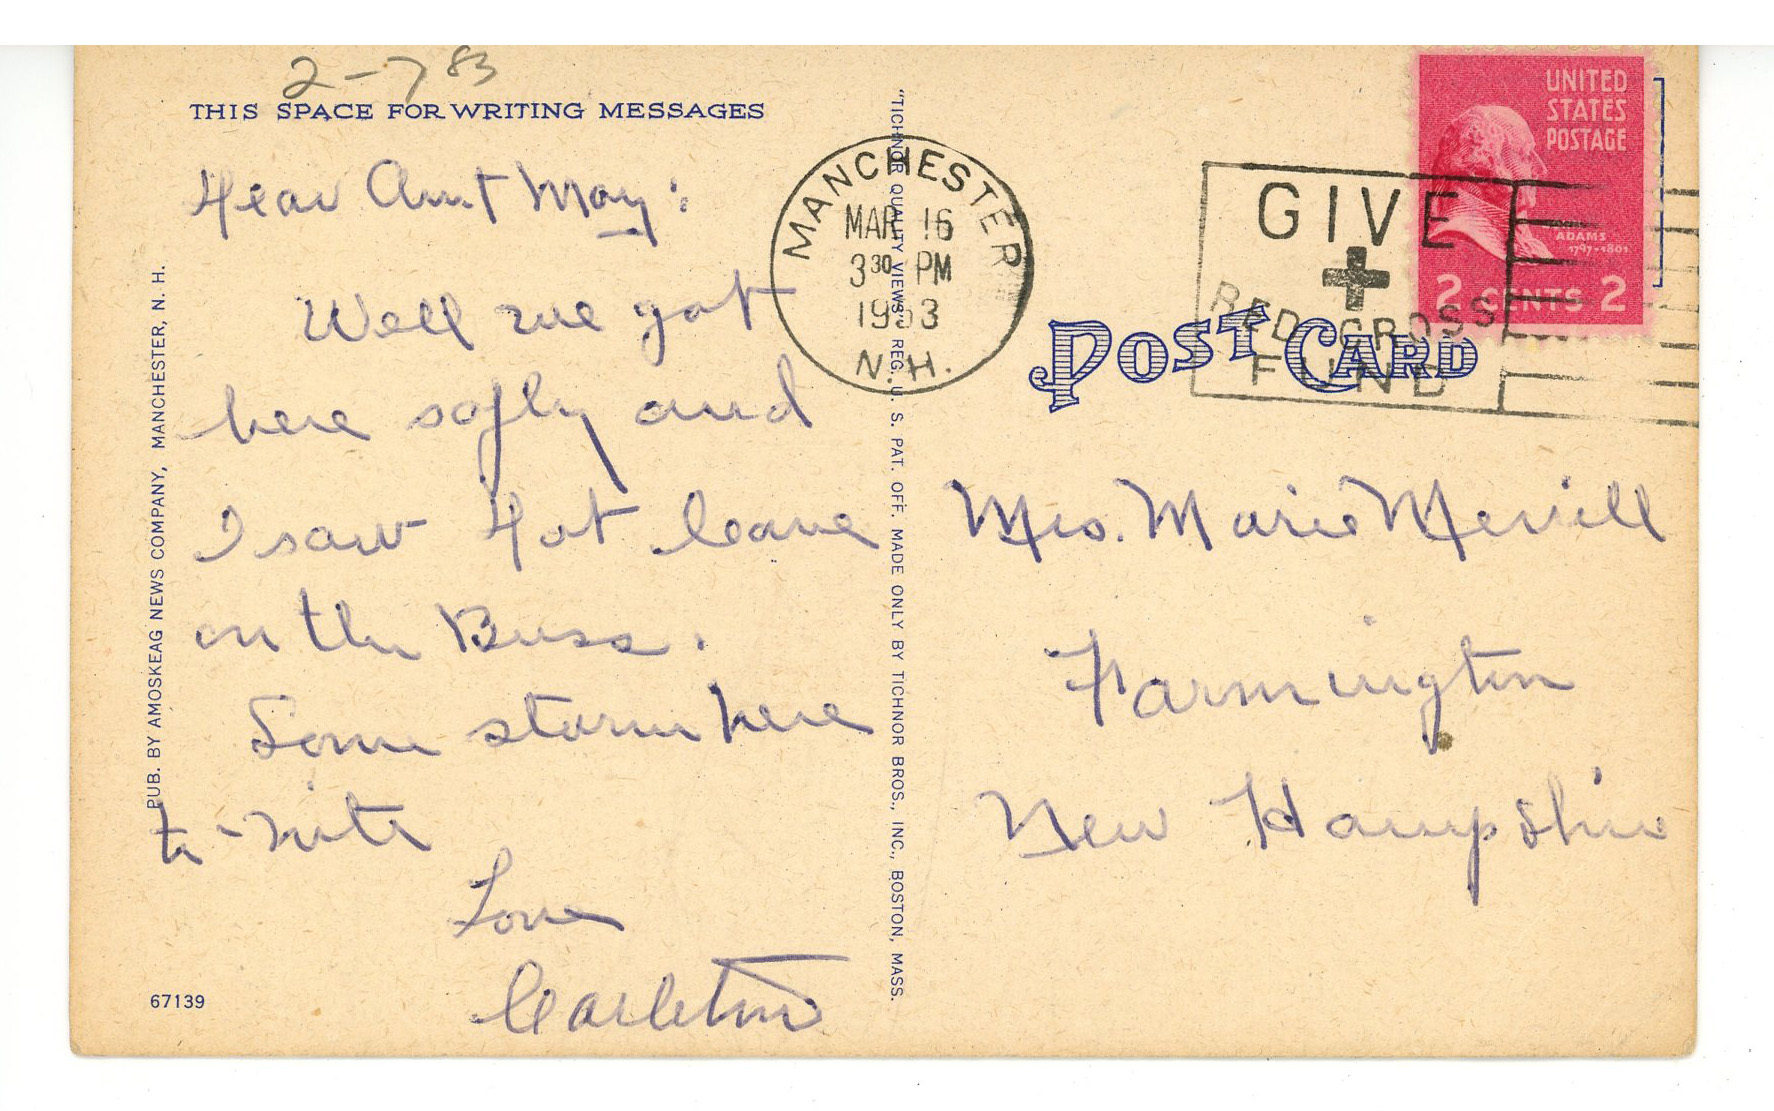 2-7 83
THIS SPACE FOR WRITING MESSAGES
Dear Aunt May:
Well we got
here safly and
I saw Dot leave
on the Buss.
Some storm here
to-nite
Love
Carleton
67139
PUB. BY AMOSKEAG NEWS COMPANY, MANCHESTER, N. H.
"TICHNOR QUALITY VIEWS," REG. U. S. PAT. OFF. MADE ONLY BY TICHNOR BROS., INC., BOSTON, MASS.
MANCHESTER
MAR 16
3 30 PM
1953
N.H.
GIVE
RED CROSS
FUND
UNITED
STATES
POSTAGE
ADAMS
1797-1801
2 CENTS 2
POST CARD
Mrs. Marie Merrill
Farmington
New Hampshire